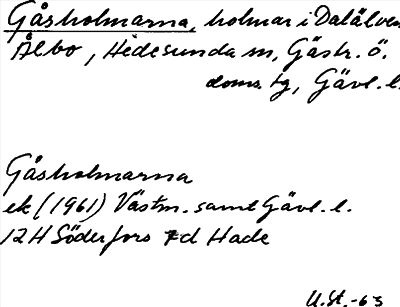 Gåsholmarna, holmar i Dalälven
Ålbo, Hedesunda sn, Gästr. ö.
doms. tg, Gävl. l.
Gåsholmarna
ek (1961) Västm. samt Gävl. l.
12H Söderfors 7d Hade
U.St.-63